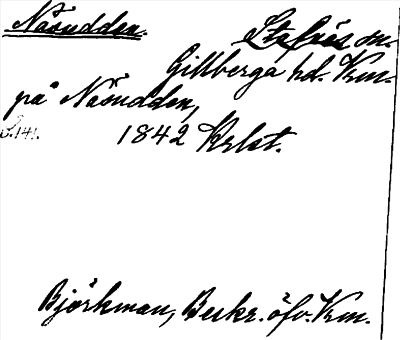 Näsudden. Sta fnäs sn.
Gillberga hd. Vrm.
på Näsudden,
s. 141. 1842 Krlst.
Björkman, Beskr. öfv. Vrm.